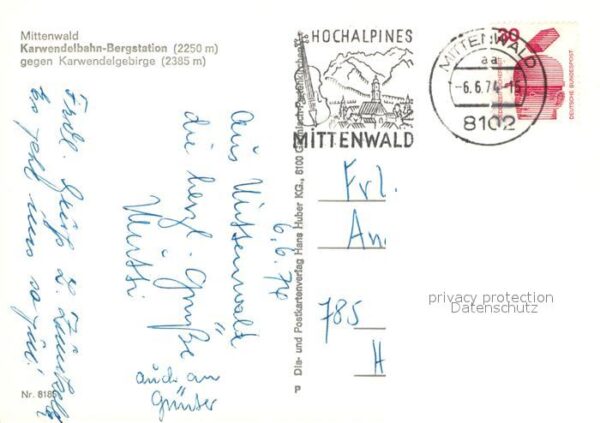 Mittenwald
Karwendelbahn-Bergstation (2250 m)
gegen Karwendelgebirge (2385 m)
HOCHALPINES
MITTENWALD
MITTENWALD
aa
-6.6.74-15
8102
30
DEUTSCHE BUNDESPOST
6.6.74
aus Mittenwald
die herzl. Grüße
Mutti
auch an
Günter
Es geht uns so gut!
Frl.
An.
785
H
privacy protection
Datenschutz
Dia- und Postkartenverlag Hans Huber KG., 8100 Garmisch-Partenkirchen
P
Nr. 8189